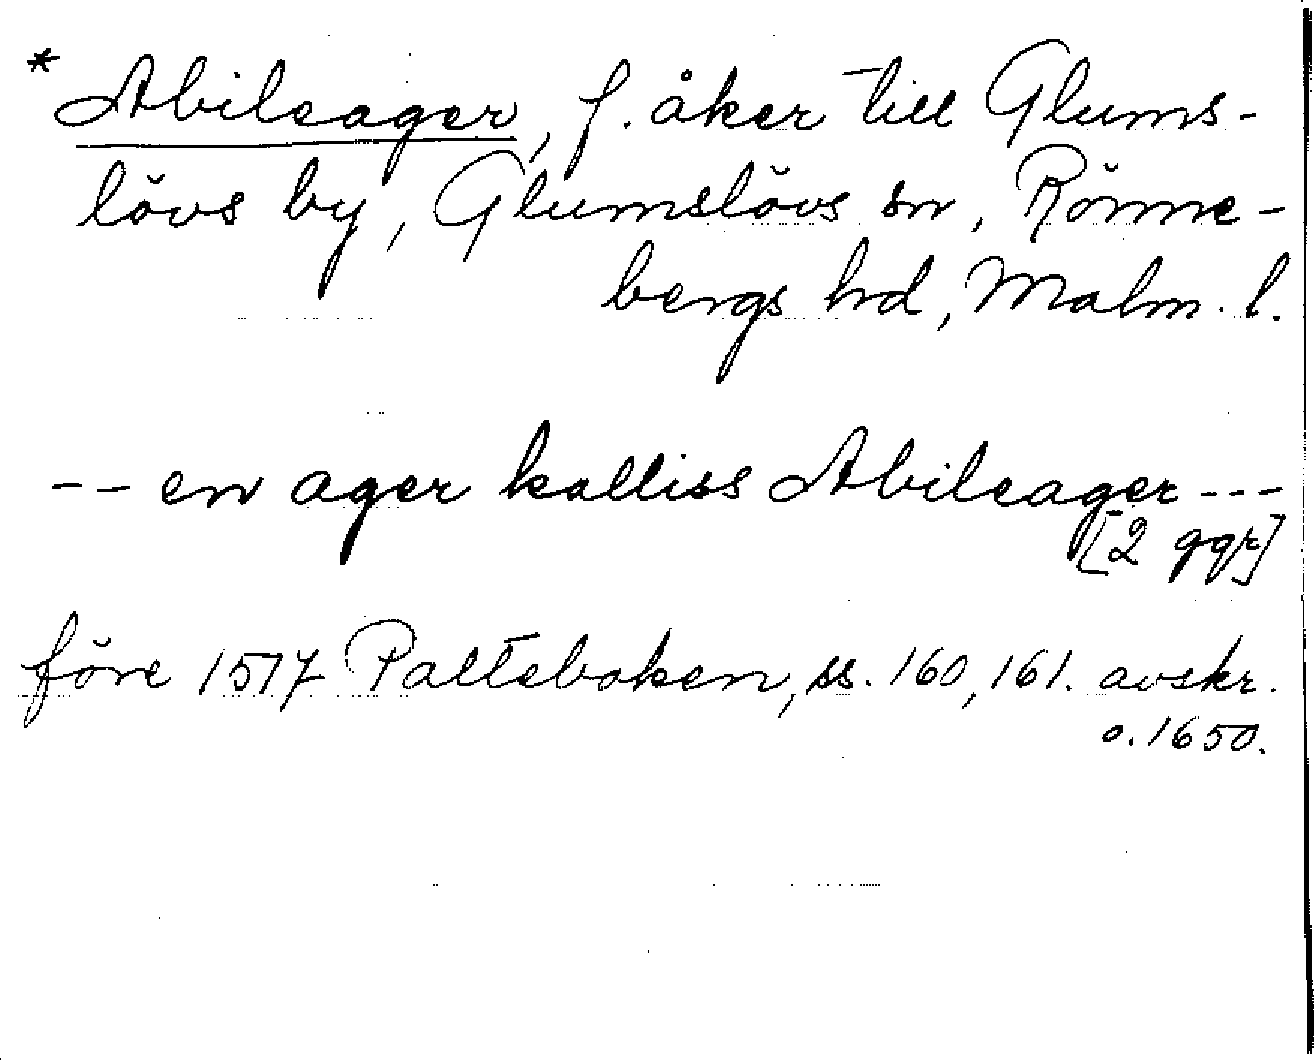 * Abileager, f. åker till Glums-
lövs by, Glumslövs sn, Rönne-
bergs hd, Malm. l.
-- en ager kalliss Abileager ---
[2 ggr]
före 1517 Palteboken, ss. 160, 161. avskr.
o. 1650.